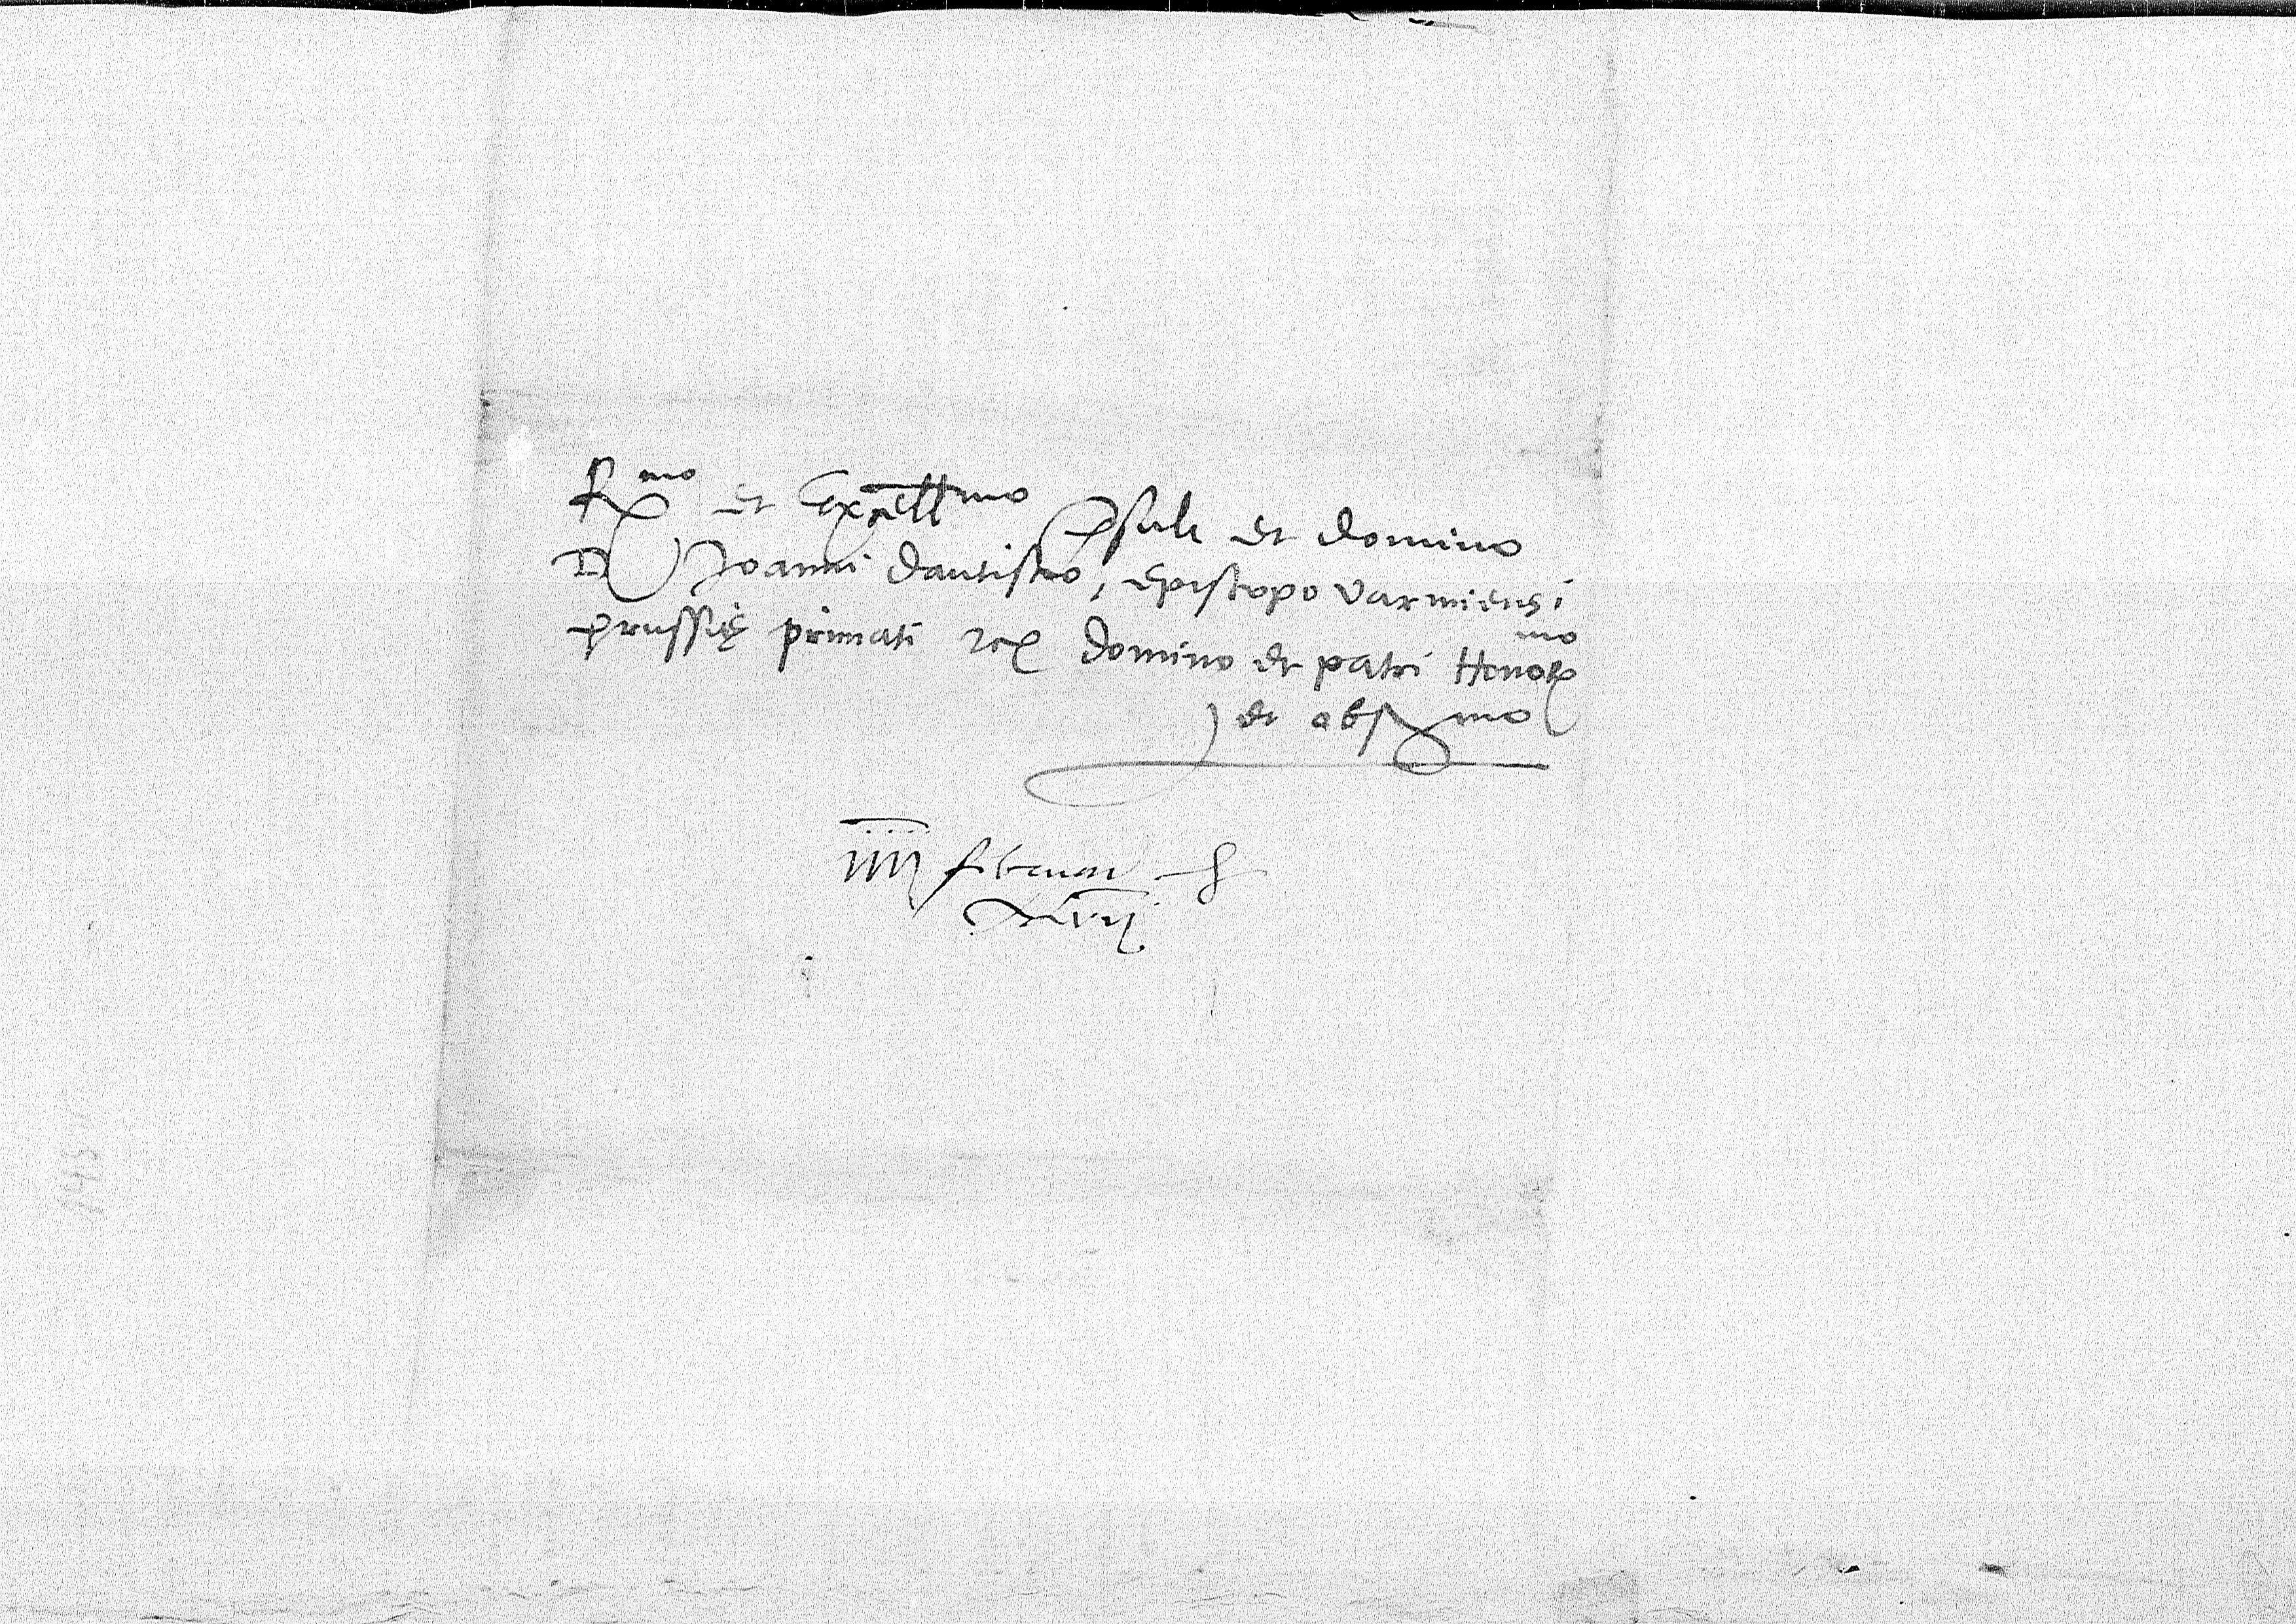 R^mo et Excell^mo p̄suli et domino
D Joanni Dantisco, Episcopo Varmiensi
Prussię primati etc domino et patri Honor^mo
et obser^mo
iiii februarii
XLvii